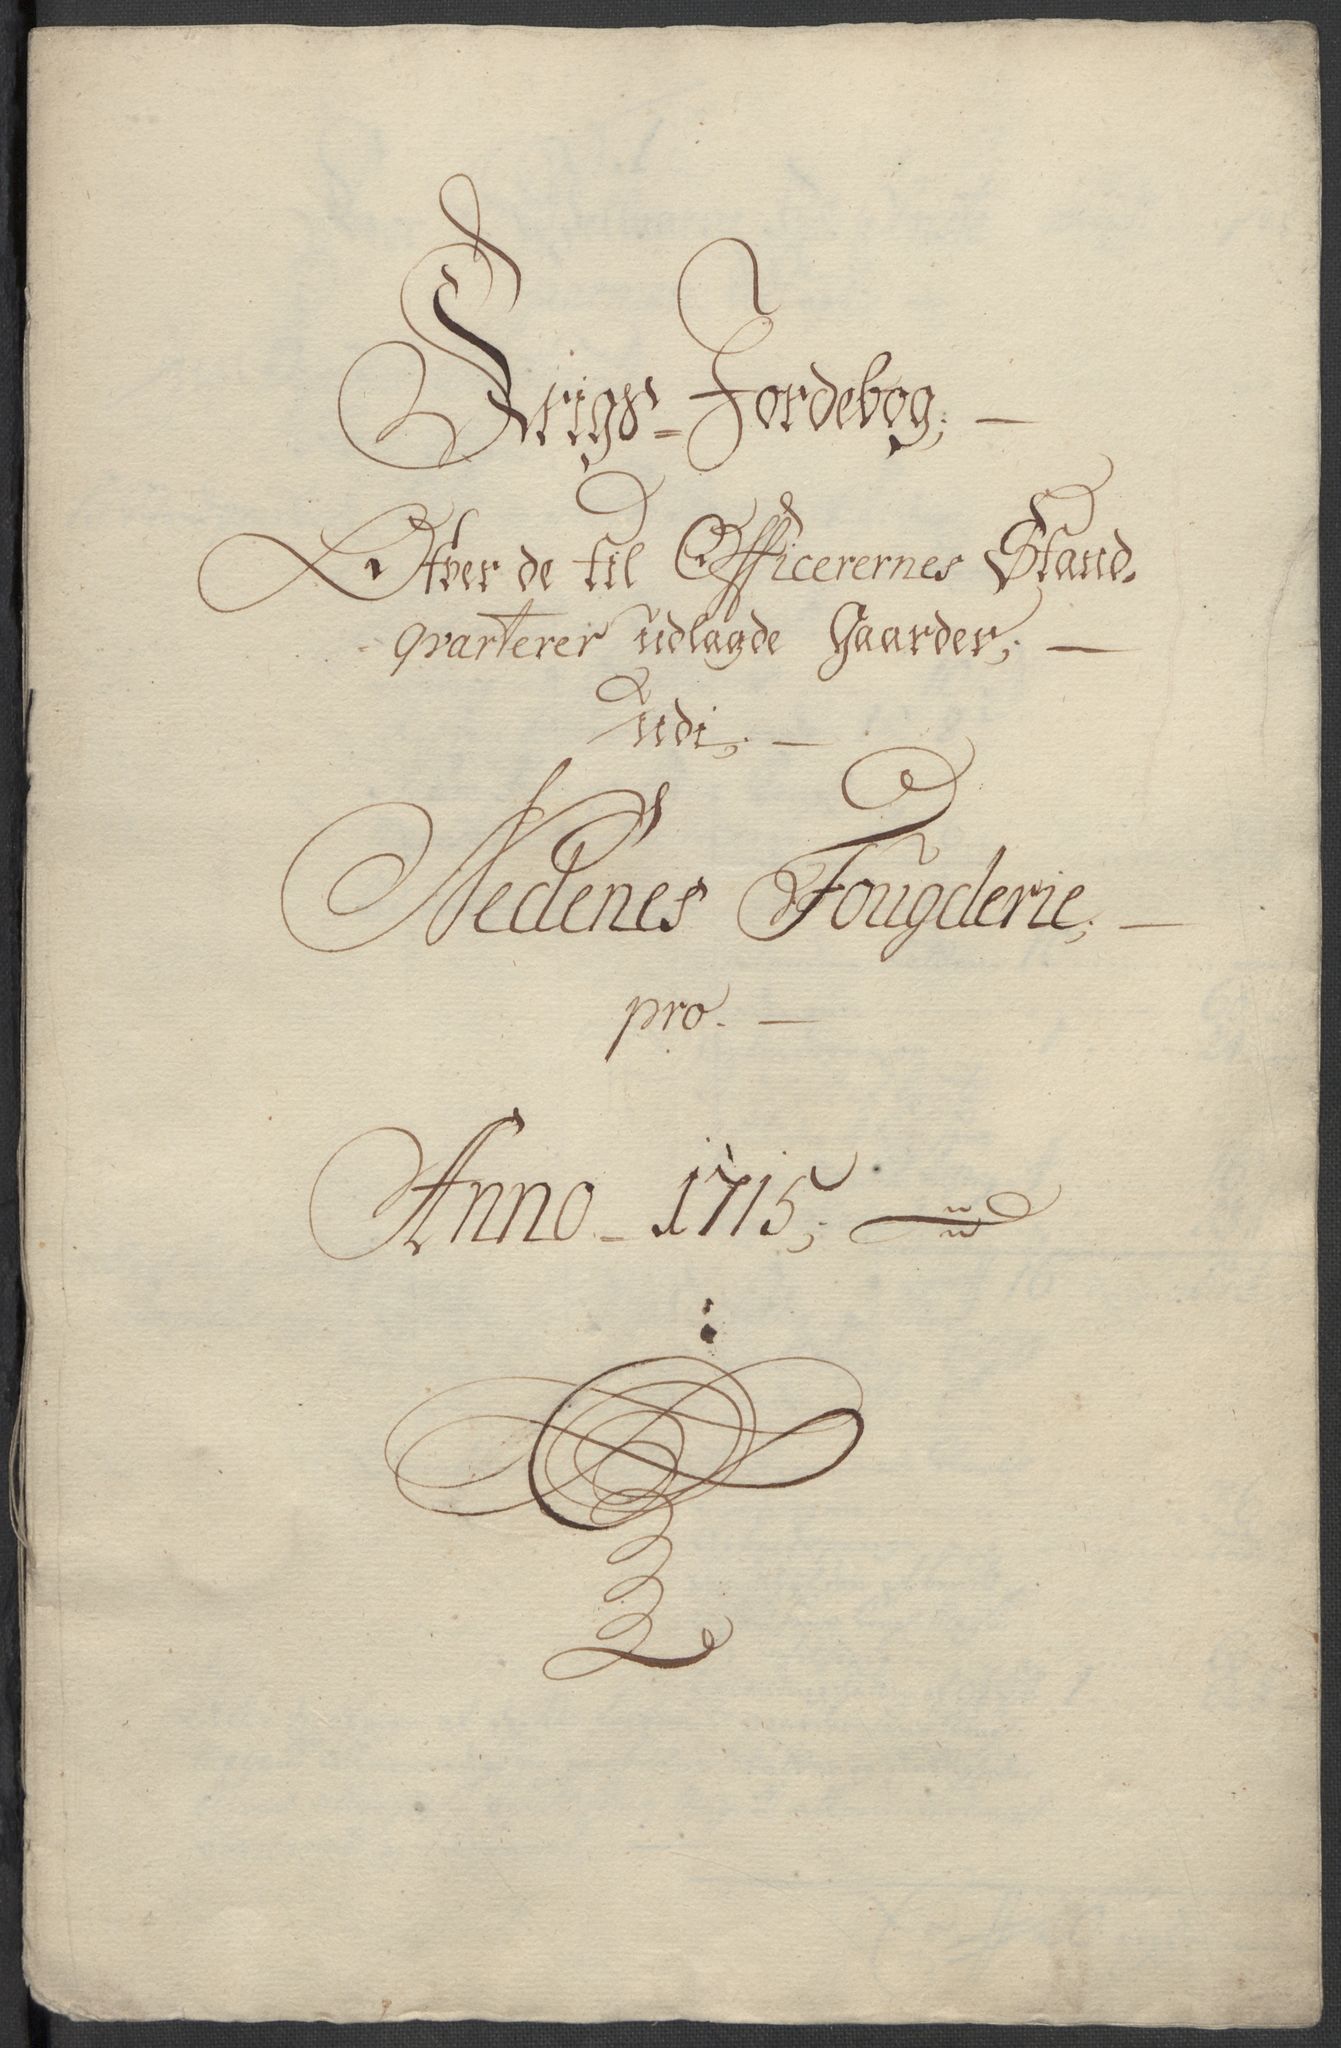 Krigs-Jordebog;
Ofver de til Officerernes Stand-
qvarterer udlagde Gaarder;
Udi;
Nedenes Fougderie;
pro.
Anno 1715;